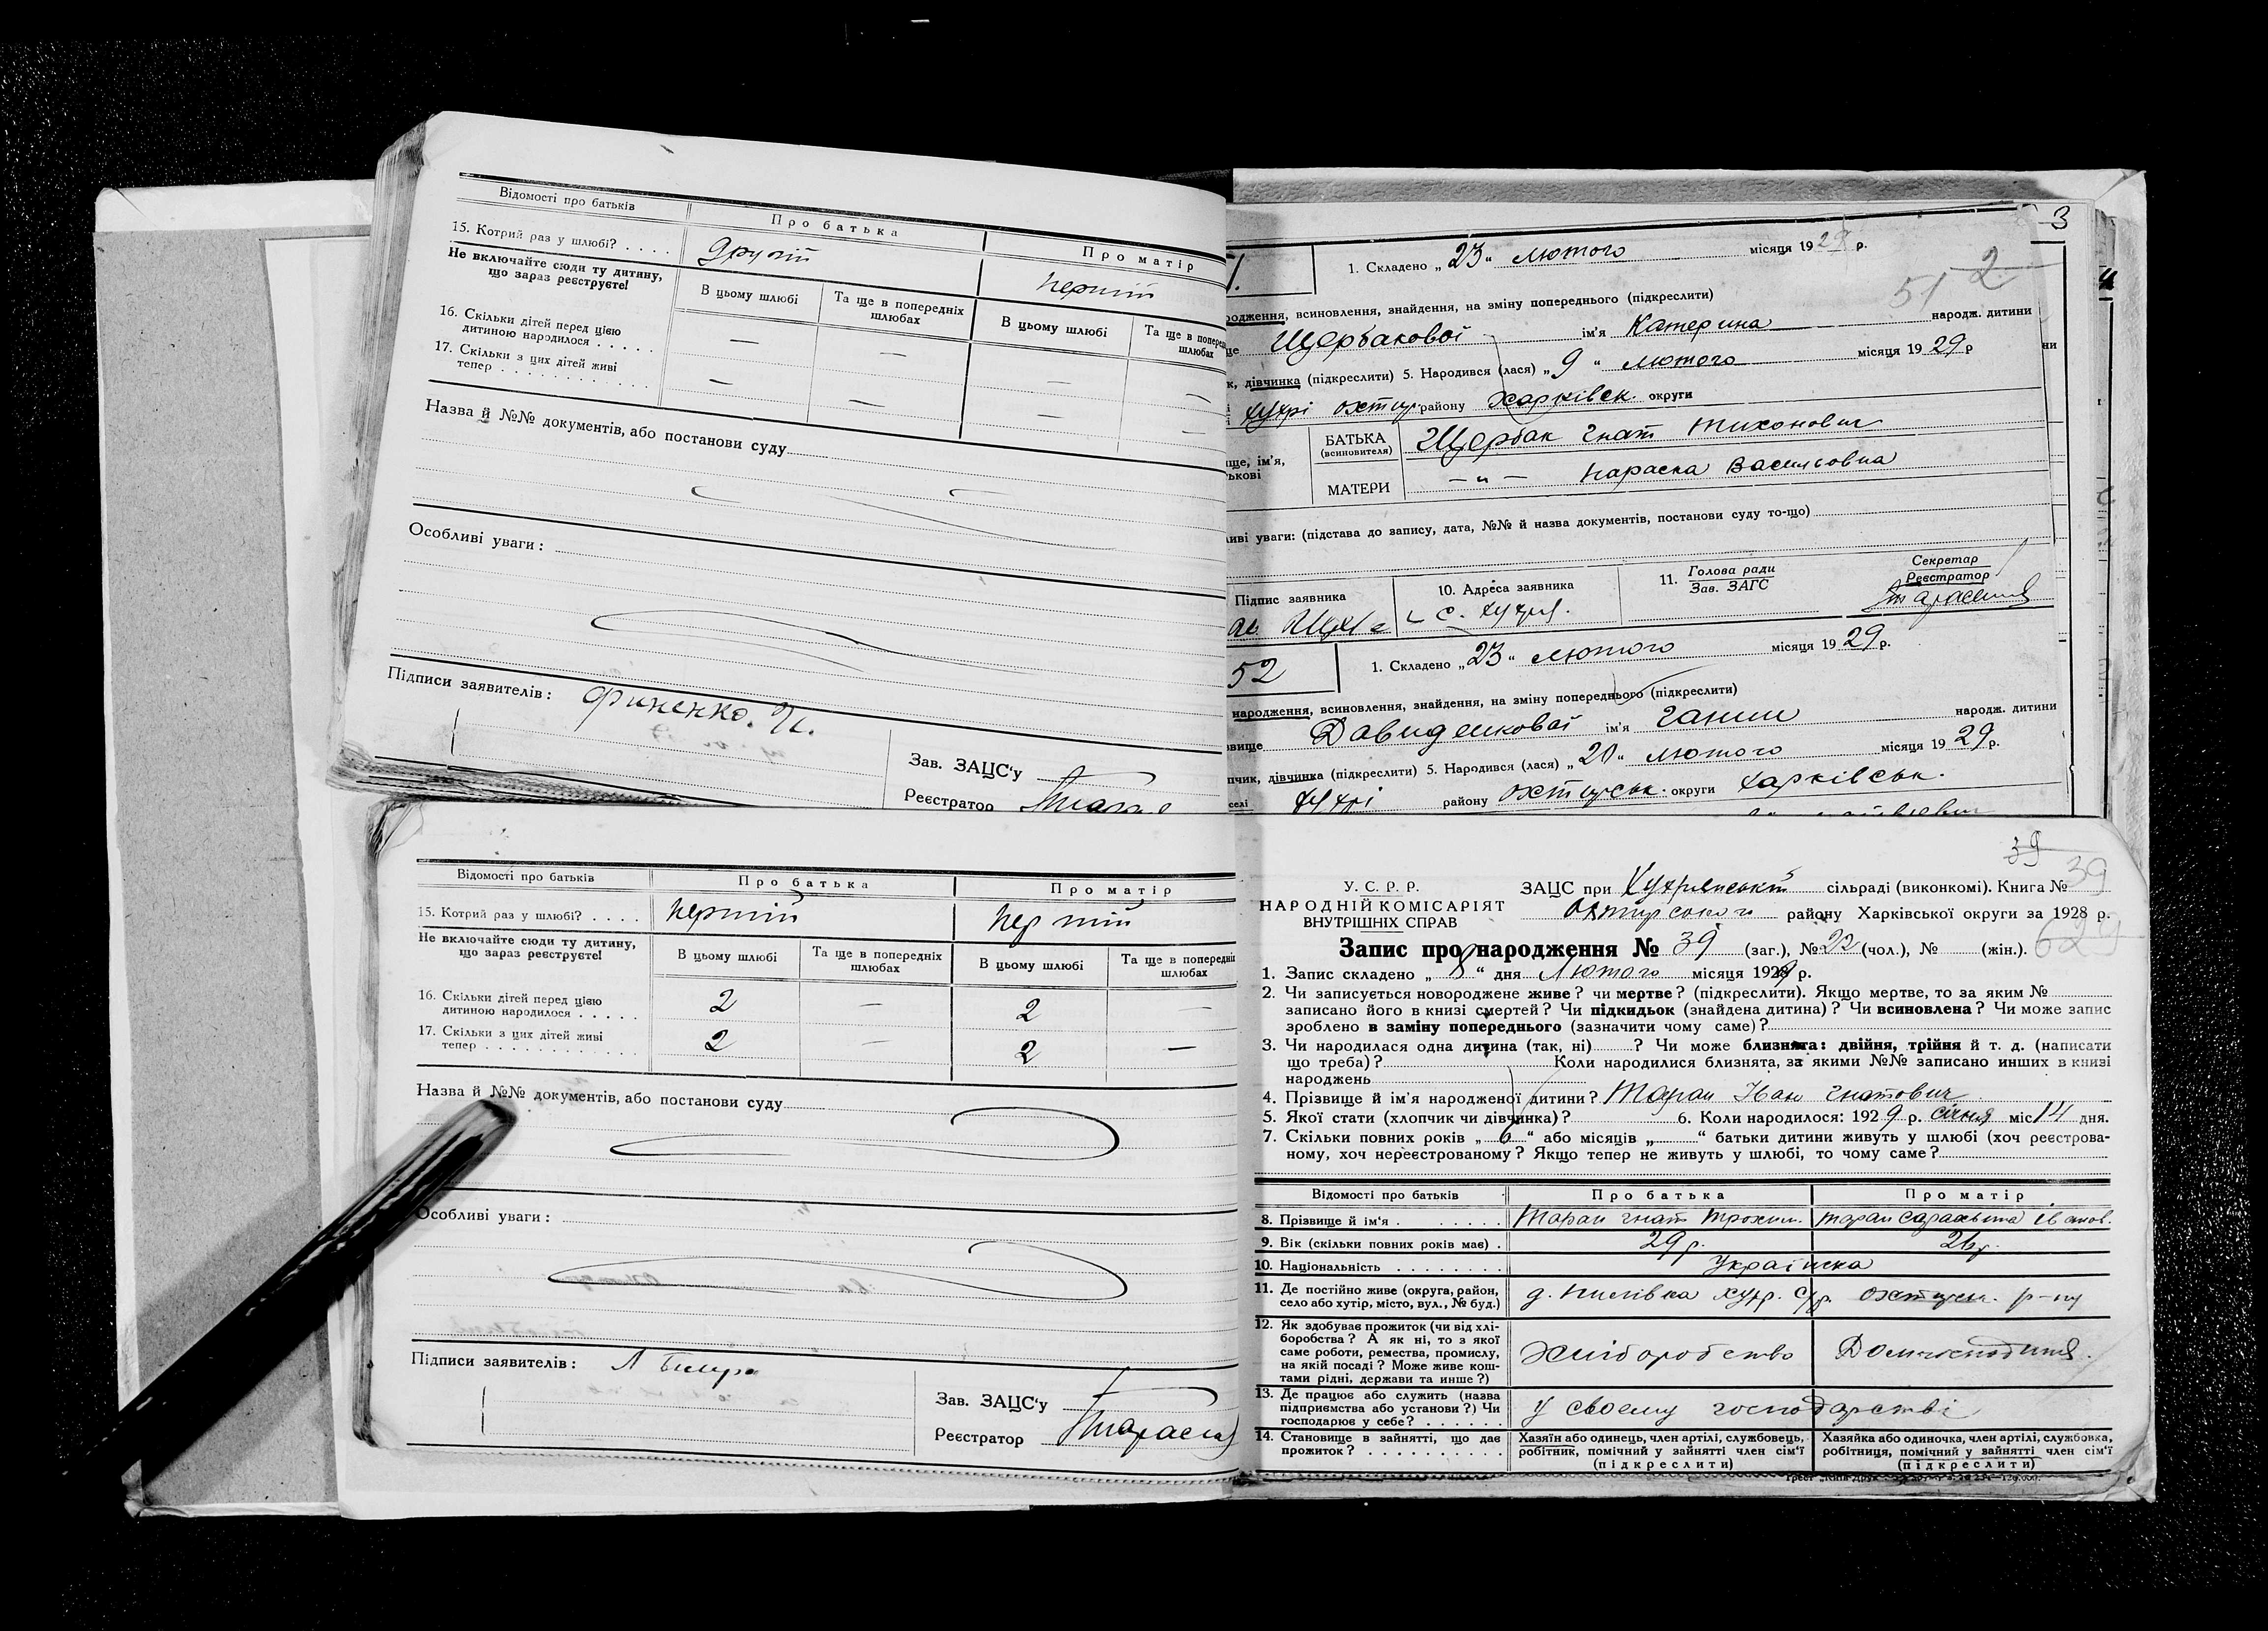 Відомості про батьків
Про батька
Про матір
15. Котрий раз у шлюбі? . . . .
другий
перший
Не включайте сюди ту дитину,
що зараз реєструєте!
В цьому шлюбі
Та ще в попередніх
шлюбах
В цьому шлюбі
шлюбах
16. Скільки дітей перед цією
дитиною народилося . . . . .
— — — —
17. Скільки з цих дітей живі
тепер . . . . . . . . . . . . .
— — — —
Назва й №№ документів, або постанови суду
Особливі уваги:
Підписи заявителів: Финенко. И.
Зав. ЗАЦС'у
Реєстратор
3
1. Складено „23" лютого місяця 1929 р.
51 2
всиновлення, знайдення, на зміну попереднього (підкреслити)
Щербакової ім'я Катерина народж. дитини
дівчинка (підкреслити) 5. Народився (лася) „9" лютого місяця 1929 р
хухрі охтир. району Харківськ. округи
БАТЬКА
(всиновителя)
Щербак Гнат Тихонович
МАТЕРИ
—"— Параска Васильовна
уваги: (підстава до запису, дата, №№ й назва документів, постанови суду то-що)
Підпис заявника
10. Адреса заявника
с. Хухря.
11. Голова ради
Зав. ЗАГС
Секретар
Реєстратор
52
1. Складено „23" лютого місяця 1929 р.
народження, всиновлення, знайдення, на зміну попереднього (підкреслити)
Давиденкової ім'я Ганни народж. дитини
дівчинка (підкреслити) 5. Народився (лася) „20" лютого місяця 1929 р.
селі Хухрі району Охтирськ. округи Харківськ.
Відомості про батьків
Про батька
Про матір
15. Котрий раз у шлюбі? . . . .
перший
перший
Не включайте сюди ту дитину,
що зараз реєструєте!
В цьому шлюбі
Та ще в попередніх
шлюбах
В цьому шлюбі
Та ще в попередніх
шлюбах
16. Скільки дітей перед цією
дитиною народилося . . . . .
2 — 2 —
17. Скільки з цих дітей живі
тепер . . . . . . . . . . . . .
2 — 2 —
Назва й №№ документів, або постанови суду
Особливі уваги:
Підписи заявителів:
Зав. ЗАЦС'у
Реєстратор
39
39
У. С. Р. Р.
НАРОДНІЙ КОМІСАРІЯТ
ВНУТРІШНІХ СПРАВ
ЗАЦС при Хухрянській сільраді (виконкомі). Книга №
Охтирського району Харківської округи за 1928 р.
Запис про народження № 39 (заг.), № 22 (чол.), № (жін.).
1. Запис складено „8" дня Лютого місяця 1929 р.
2. Чи записується новороджене живе? чи мертве? (підкреслити). Якщо мертве, то за яким №
записано його в книзі смертей? Чи підкидьок (знайдена дитина)? Чи всиновлена? Чи може запис
зроблено в заміну попереднього (зазначити чому саме)?
3. Чи народилася одна дитина (так, ні) ? Чи може близнята: двійня, трійня й т. д. (написати
що треба)? Коли народилися близнята, за якими №№ записано инших в книзі
народжень
4. Прізвище й ім'я народженої дитини? Таран Іван Гнатович
5. Якої стати (хлопчик чи дівчинка)? 6. Коли народилося: 1929 р. січня міс 14 дня.
7. Скільки повних років „6" або місяців „ " батьки дитини живуть у шлюбі (хоч реєстрова-
ному, хоч нереєстрованому? Якщо тепер не живуть у шлюбі, то чому саме?
Відомості про батьків
Про батька
Про матір
8. Прізвище й ім'я . . . . . . .
Таран Гнат Трохим.
Таран Іванов.
9. Вік (скільки повних років має) .
29 р.
26 р.
10. Національність . . . . . . . .
Українска
11. Де постійно живе (округа, район,
село або хутір, місто, вул., № буд.)
хухр. с/р. охтирськ. р-ну
12. Як здобуває прожиток (чи від хлі-
боробства? А як ні, то з якої
саме роботи, ремества, промислу,
на якій посаді? Може живе кош-
тами рідні, держави та инше?)
Хліборобство
Домогосподиня.
13. Де працює або служить (назва
підприємства або установи?) Чи
господарює у себе? . . . . . .
у своєму господарстві
14. Становище в зайнятті, що дає
прожиток? . . . . . . . . . .
Хазяїн або одинець, член артілі, службовець,
робітник, помічний у зайнятті член сім'ї
(підкреслити)
Хазяйка або одиночка, член артілі, службовка,
робітниця, помічний у зайнятті член сім'ї
(підкреслити)